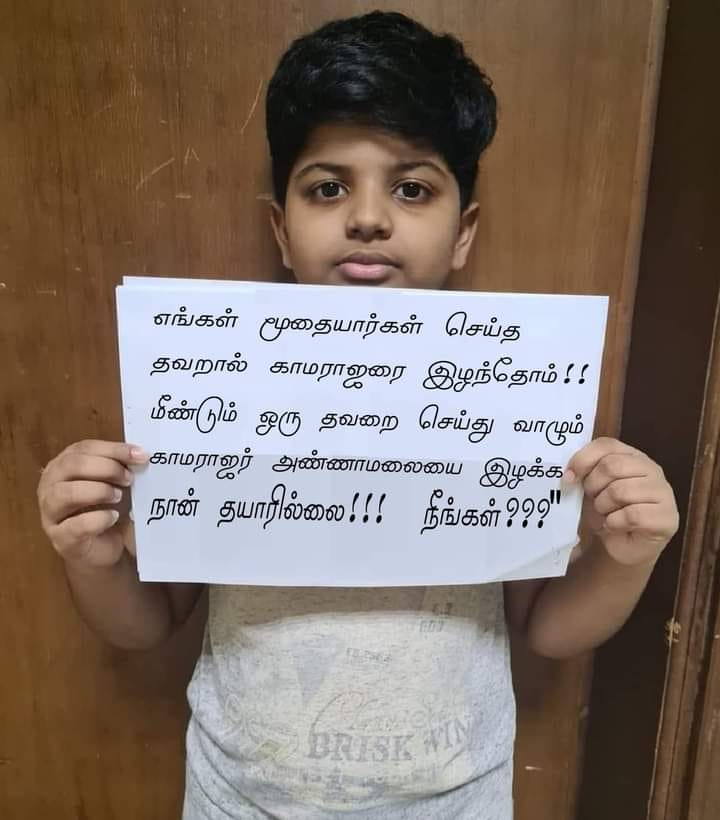 எங்கள் மூதையார்கள் செய்த
தவறால் காமராஜரை இழந்தோம்!!
மீண்டும் ஒரு தவறை செய்து வாழும்
காமராஜர் அண்ணாமலையை இழக்க
நான் தயாரில்லை!!! நீங்கள்???"
BRISK